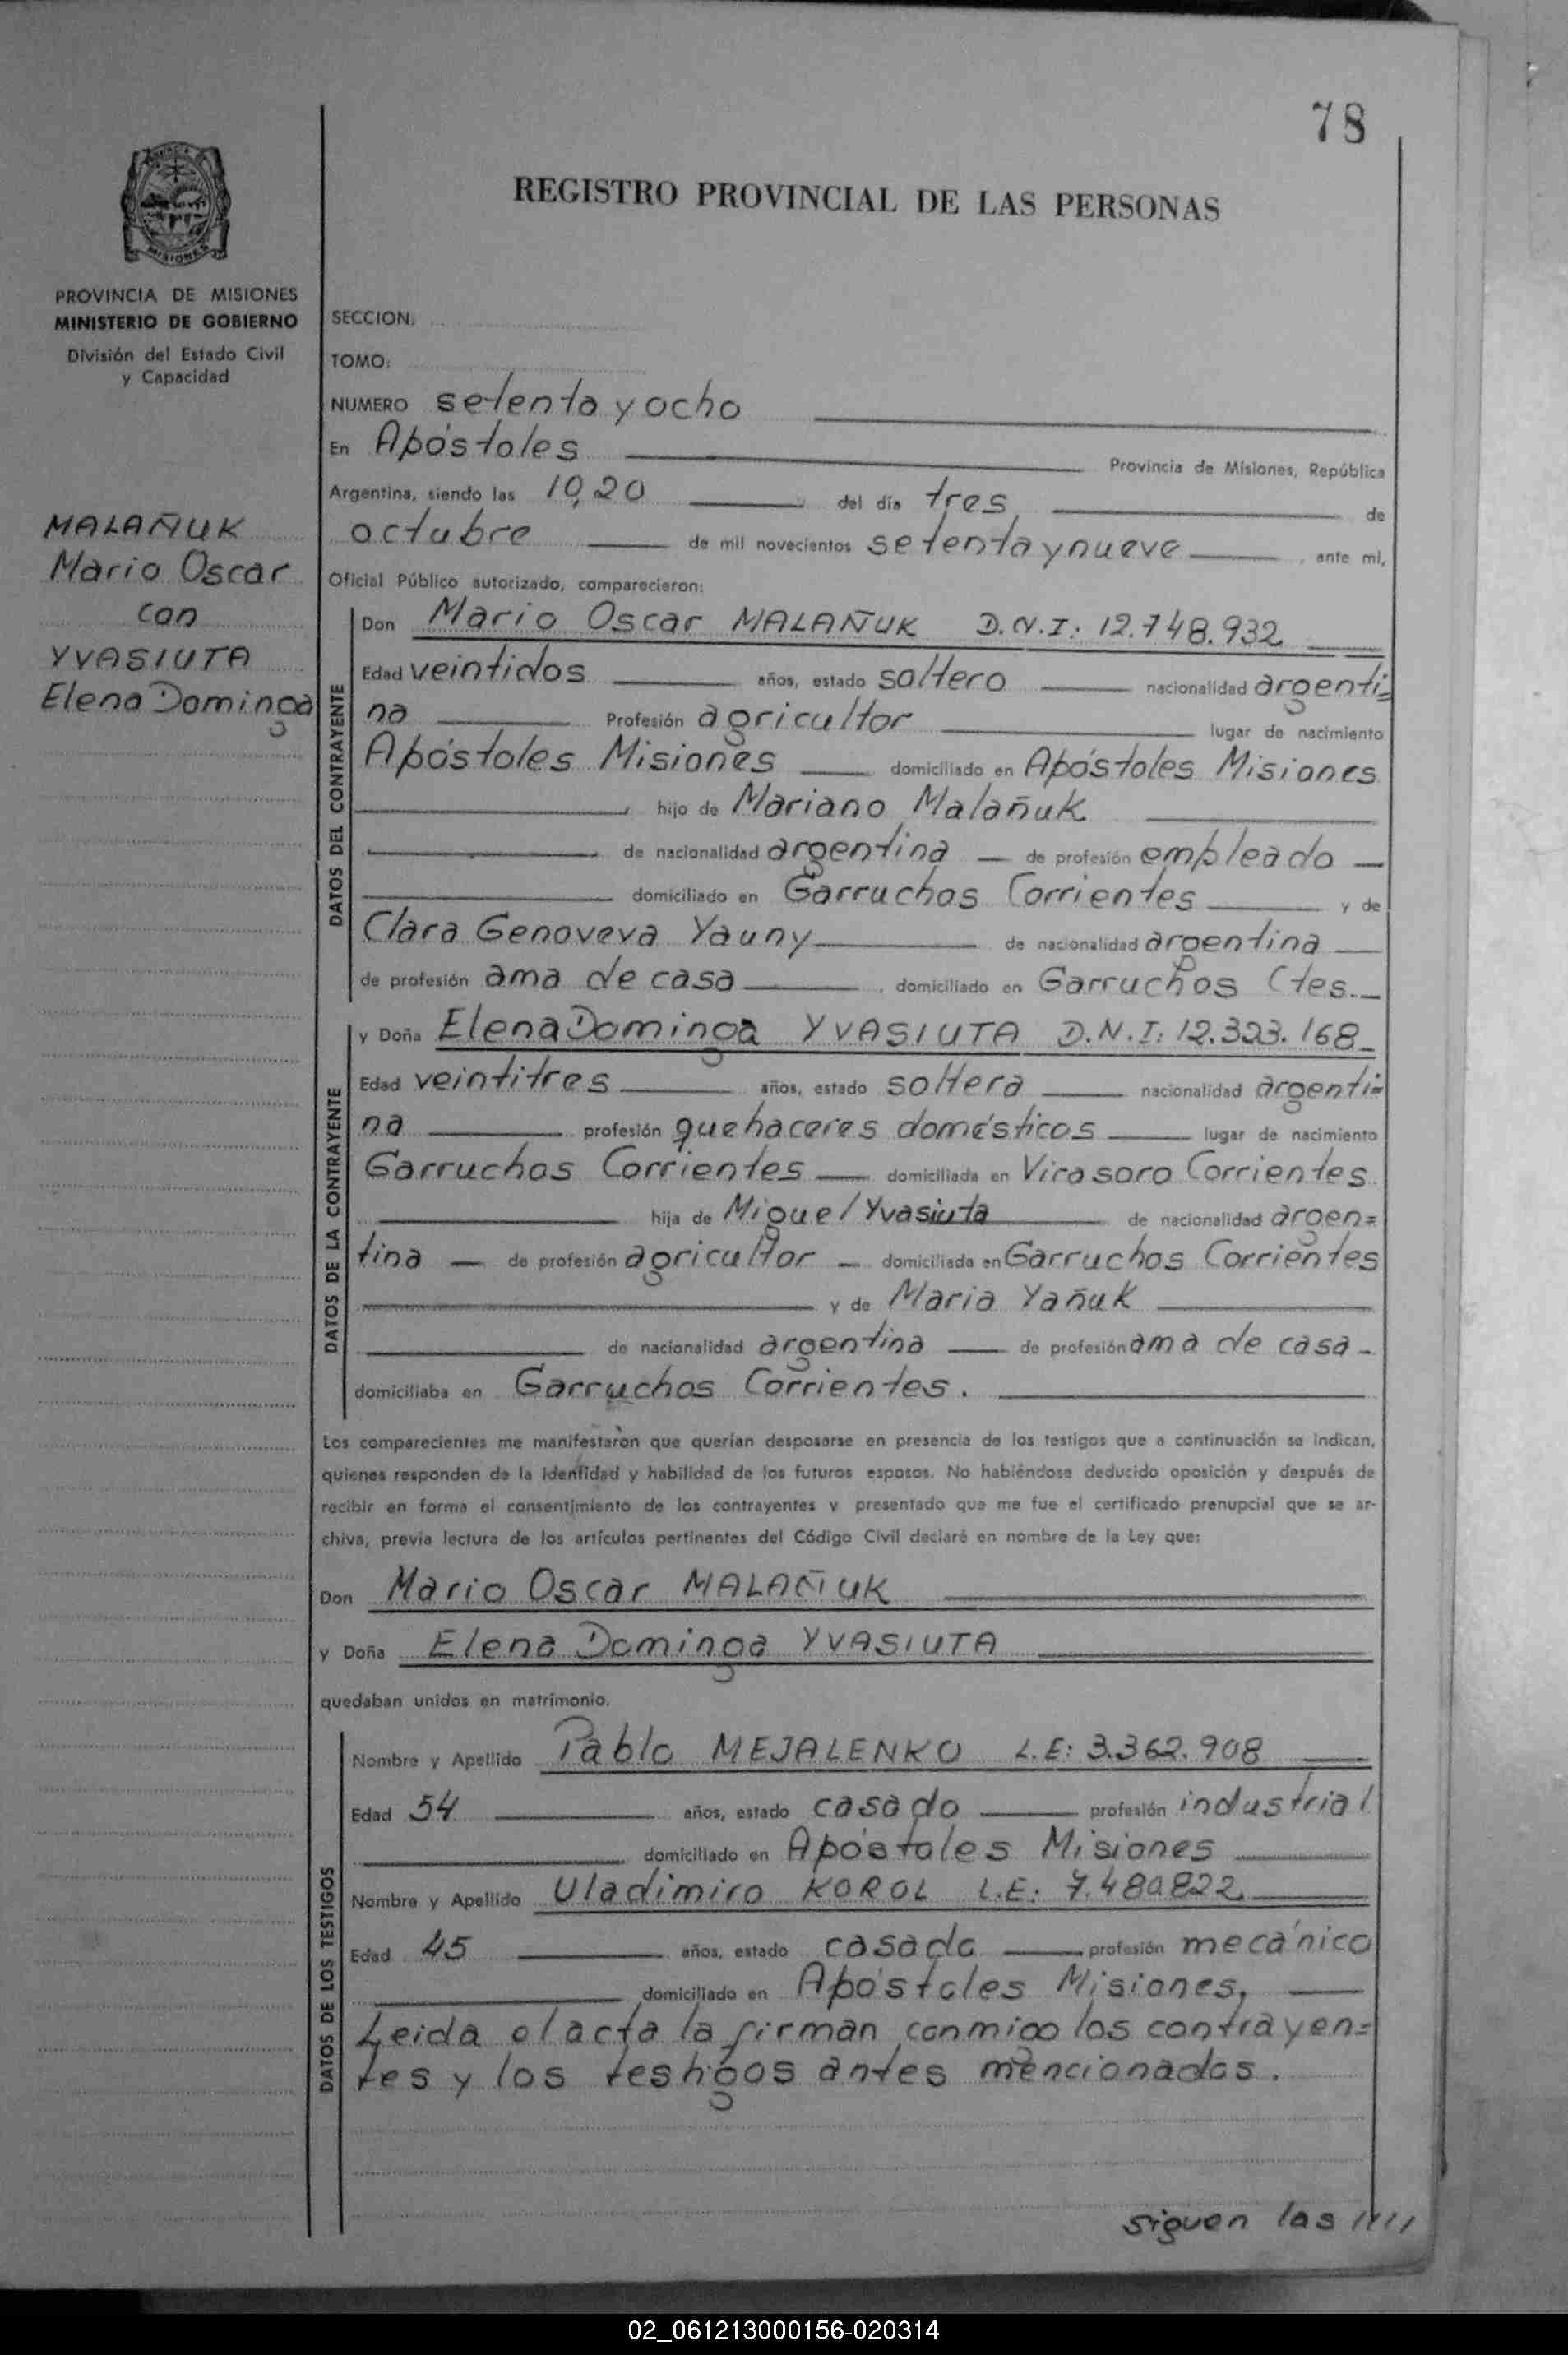 78
REGISTRO PROVINCIAL DE LAS PERSONAS
MISIONES
PROVINCIA DE MISIONES
MINISTERIO DE GOBIERNO
División del Estado Civil
y Capacidad
MALAÑUK
Mario Oscar
con
YVASIUTA
Elena Dominga
SECCION:
TOMO:
NUMERO setenta y ocho
En Apóstoles Provincia de Misiones, República
Argentina, siendo las 10,20 del día tres de
octubre de mil novecientos setenta y nueve, ante mí,
Oficial Público autorizado, comparecieron:
DATOS DEL CONTRAYENTE
Don Mario Oscar MALAÑUK D.N.I: 12.748.932
Edad veintidos años, estado soltero nacionalidad argenti=
na Profesión agricultor lugar de nacimiento
Apóstoles Misiones domiciliado en Apóstoles Misiones
, hijo de Mariano Malañuk
de nacionalidad argentina de profesión empleado
domiciliado en Garruchos Corrientes y de
Clara Genoveva Yauny de nacionalidad argentina
de profesión ama de casa, domiciliado en Garruchos Ctes.
DATOS DE LA CONTRAYENTE
y Doña Elena Dominga YVASIUTA D.N.I: 12.323.168
Edad veintitres años, estado soltera nacionalidad argenti=
na profesión quehaceres domésticos lugar de nacimiento
Garruchos Corrientes domiciliada en Virasoro Corrientes
hija de Miguel Yvasiuta de nacionalidad argen=
tina de profesión agricultor domiciliada en Garruchos Corrientes
y de Maria Yañuk
de nacionalidad argentina de profesión ama de casa
domiciliaba en Garruchos Corrientes.
Los comparecientes me manifestaron que querían desposarse en presencia de los testigos que a continuación se indican,
quienes responden de la identidad y habilidad de los futuros esposos. No habiéndose deducido oposición y después de
recibir en forma el consentimiento de los contrayentes y presentado que me fue el certificado prenupcial que se ar-
chiva, previa lectura de los artículos pertinentes del Código Civil declaré en nombre de la Ley que:
Don Mario Oscar MALAÑUK
y Doña Elena Dominga YVASIUTA
quedaban unidos en matrimonio.
DATOS DE LOS TESTIGOS
Nombre y Apellido Pablo MEJALENKO L.E: 3.362.908
Edad 54 años, estado casado profesión industrial
domiciliado en Apóstoles Misiones
Nombre y Apellido Uladimiro KOROL L.E: 7.480.822
Edad 45 años, estado casado profesión mecánico
domiciliado en Apóstoles Misiones.
Leida el acta la firman conmigo los contrayen=
tes y los testigos antes mencionados.
siguen las /////
02_061213000156-020314